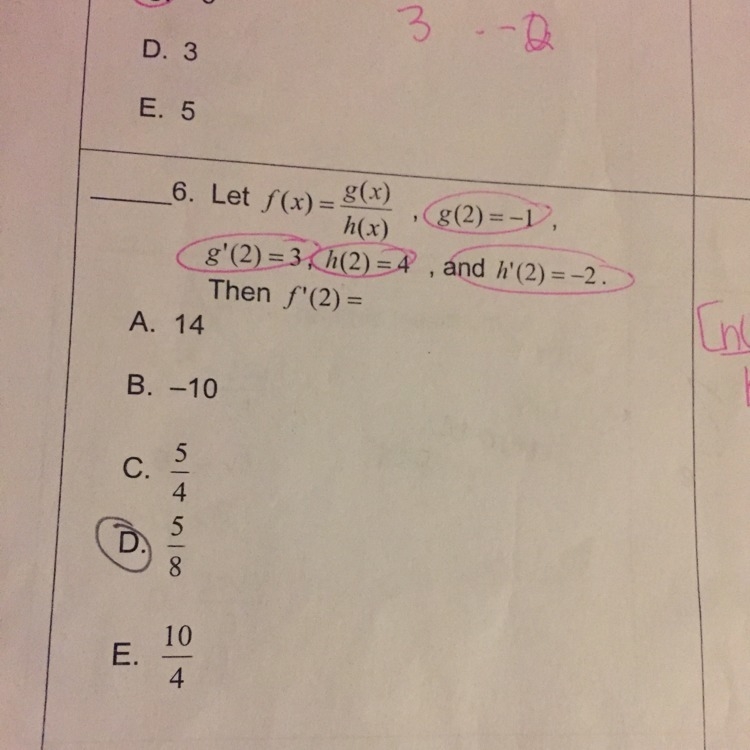 3 --2
D. 3
E. 5
_____6. Let f(x) = g(x)/h(x) , g(2) = −1 ,
g'(2) = 3, h(2) = 4 , and h'(2) = −2.
Then f'(2) =
A. 14
B. −10
C. 5/4
D. 5/8
E. 10/4